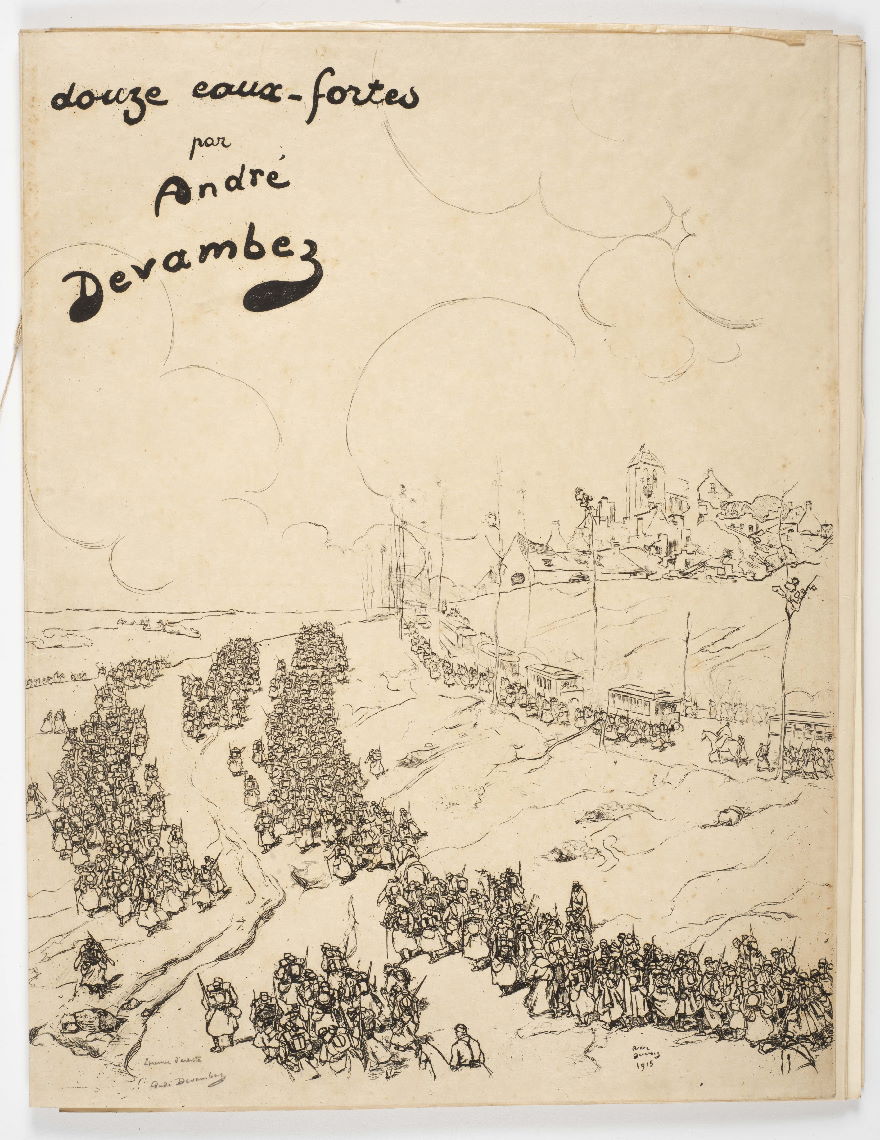 douze eaux-fortes
par
André
Devambez
Epreuve d'artiste
André Devambez
André
Devambez
1915